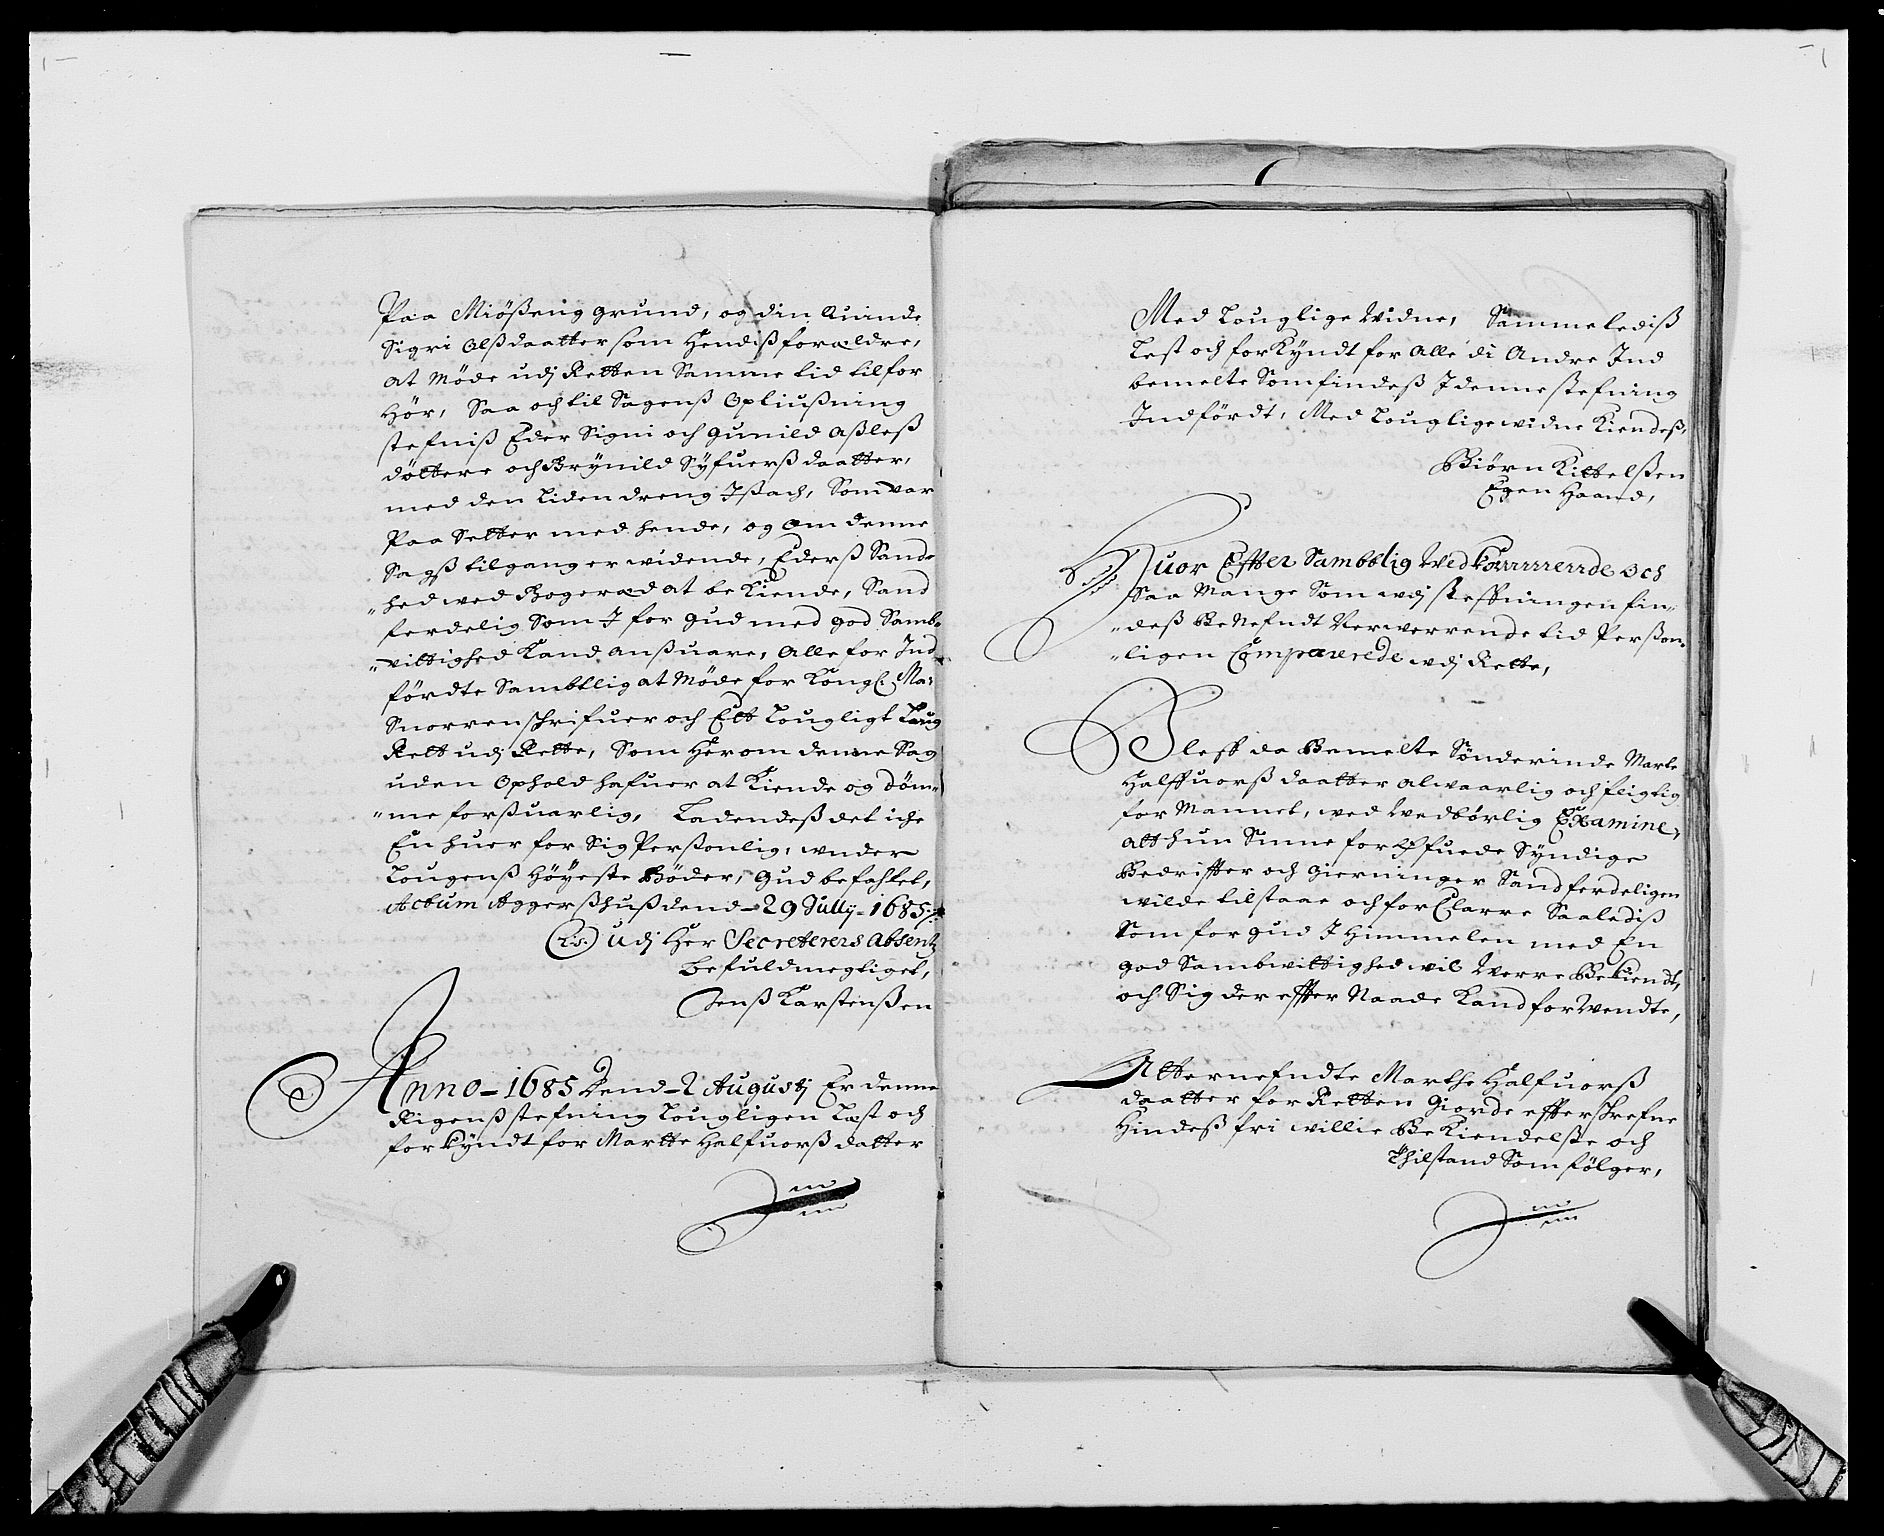 Paa Miößeng grund, og din Quinde
Sigri Olßdaatter som Hendiß forældre,
at Møde udj Retten Samme tid tilfor
Hör, Saa och til Sagenß Opliußning
stefniß Eder Signi och Gunild Aßleß
döttere och Brÿnild Sÿfuerß daatter,
med den Liden dreng Ißach, Som var
Paa Setter med hende, og Om denne
Sagß tilgang er widende, Ederß Sand-
"hed ved Bogeræd at beKiende, Sand
ferdelig Som I for Gud med god Samb-
"vittighed Kand anßuare, Alle for Ind
fördte Sambtlig at Møde for Kongl. Ma:
Snorrenschrifuer och Ett Lougligt Laug
Rett udj Rette, Som Her om denne Sag
uden Ophold hafuer at Kiende og döm-
"me forßuarlig, Ladendeß det iche
En huer for Sig Perßonlig, under
Lougenß Höÿeste Böder, Gud befahlet,
Actum Aggerßhuß dend - 29 Jullÿ - 1685
(L.S.) Udj Her Secreterers Absentz
befuldmegtiget,
Jenß Karstenßen
Anno - 1685 Dend - 2 Augustj Er denne
Rigenß stefning Lougligen Læst och
forKÿndt for Martte Halfuorß datter
Med Louglige Widne, Sammelediß
Lest och forKÿndt for Alle di Andre Ind
bemelte Som findeß I denne stefning
Indfördt, Med Louglige widne Kiendeß,
Biörn Kittelßen
Egen Haand,
Huor Effter Sambtlig Vedkommerrende och
Saa Mange Som udj steffningen fin-
"deß BeNefndt Nerwerrende tid Perßon-
"ligen Comparerede udj Rette,
Bleff da Bemelte Sönderinde Marte
Halffuorß daatter alwaarlig och fligtig
for Mannet, ved Vedbörlig Examine,
att hun Sinne for Öfuede Sÿndige
Bedriffter och Gierninger Sandferdeligen
wilde tilstaae och for Clarre Saalediß
Som for Gud I Himmelen med En
god Sambwittighed wil Werre Bekiendt,
och Sig der effter Naade Kand forVendte,
Atternefndte Marthe Halfuorß
daatter for Retten Giorde effterschrefne
Hindeß fri willie BeKiendelße och
Thilstand Som fölger,